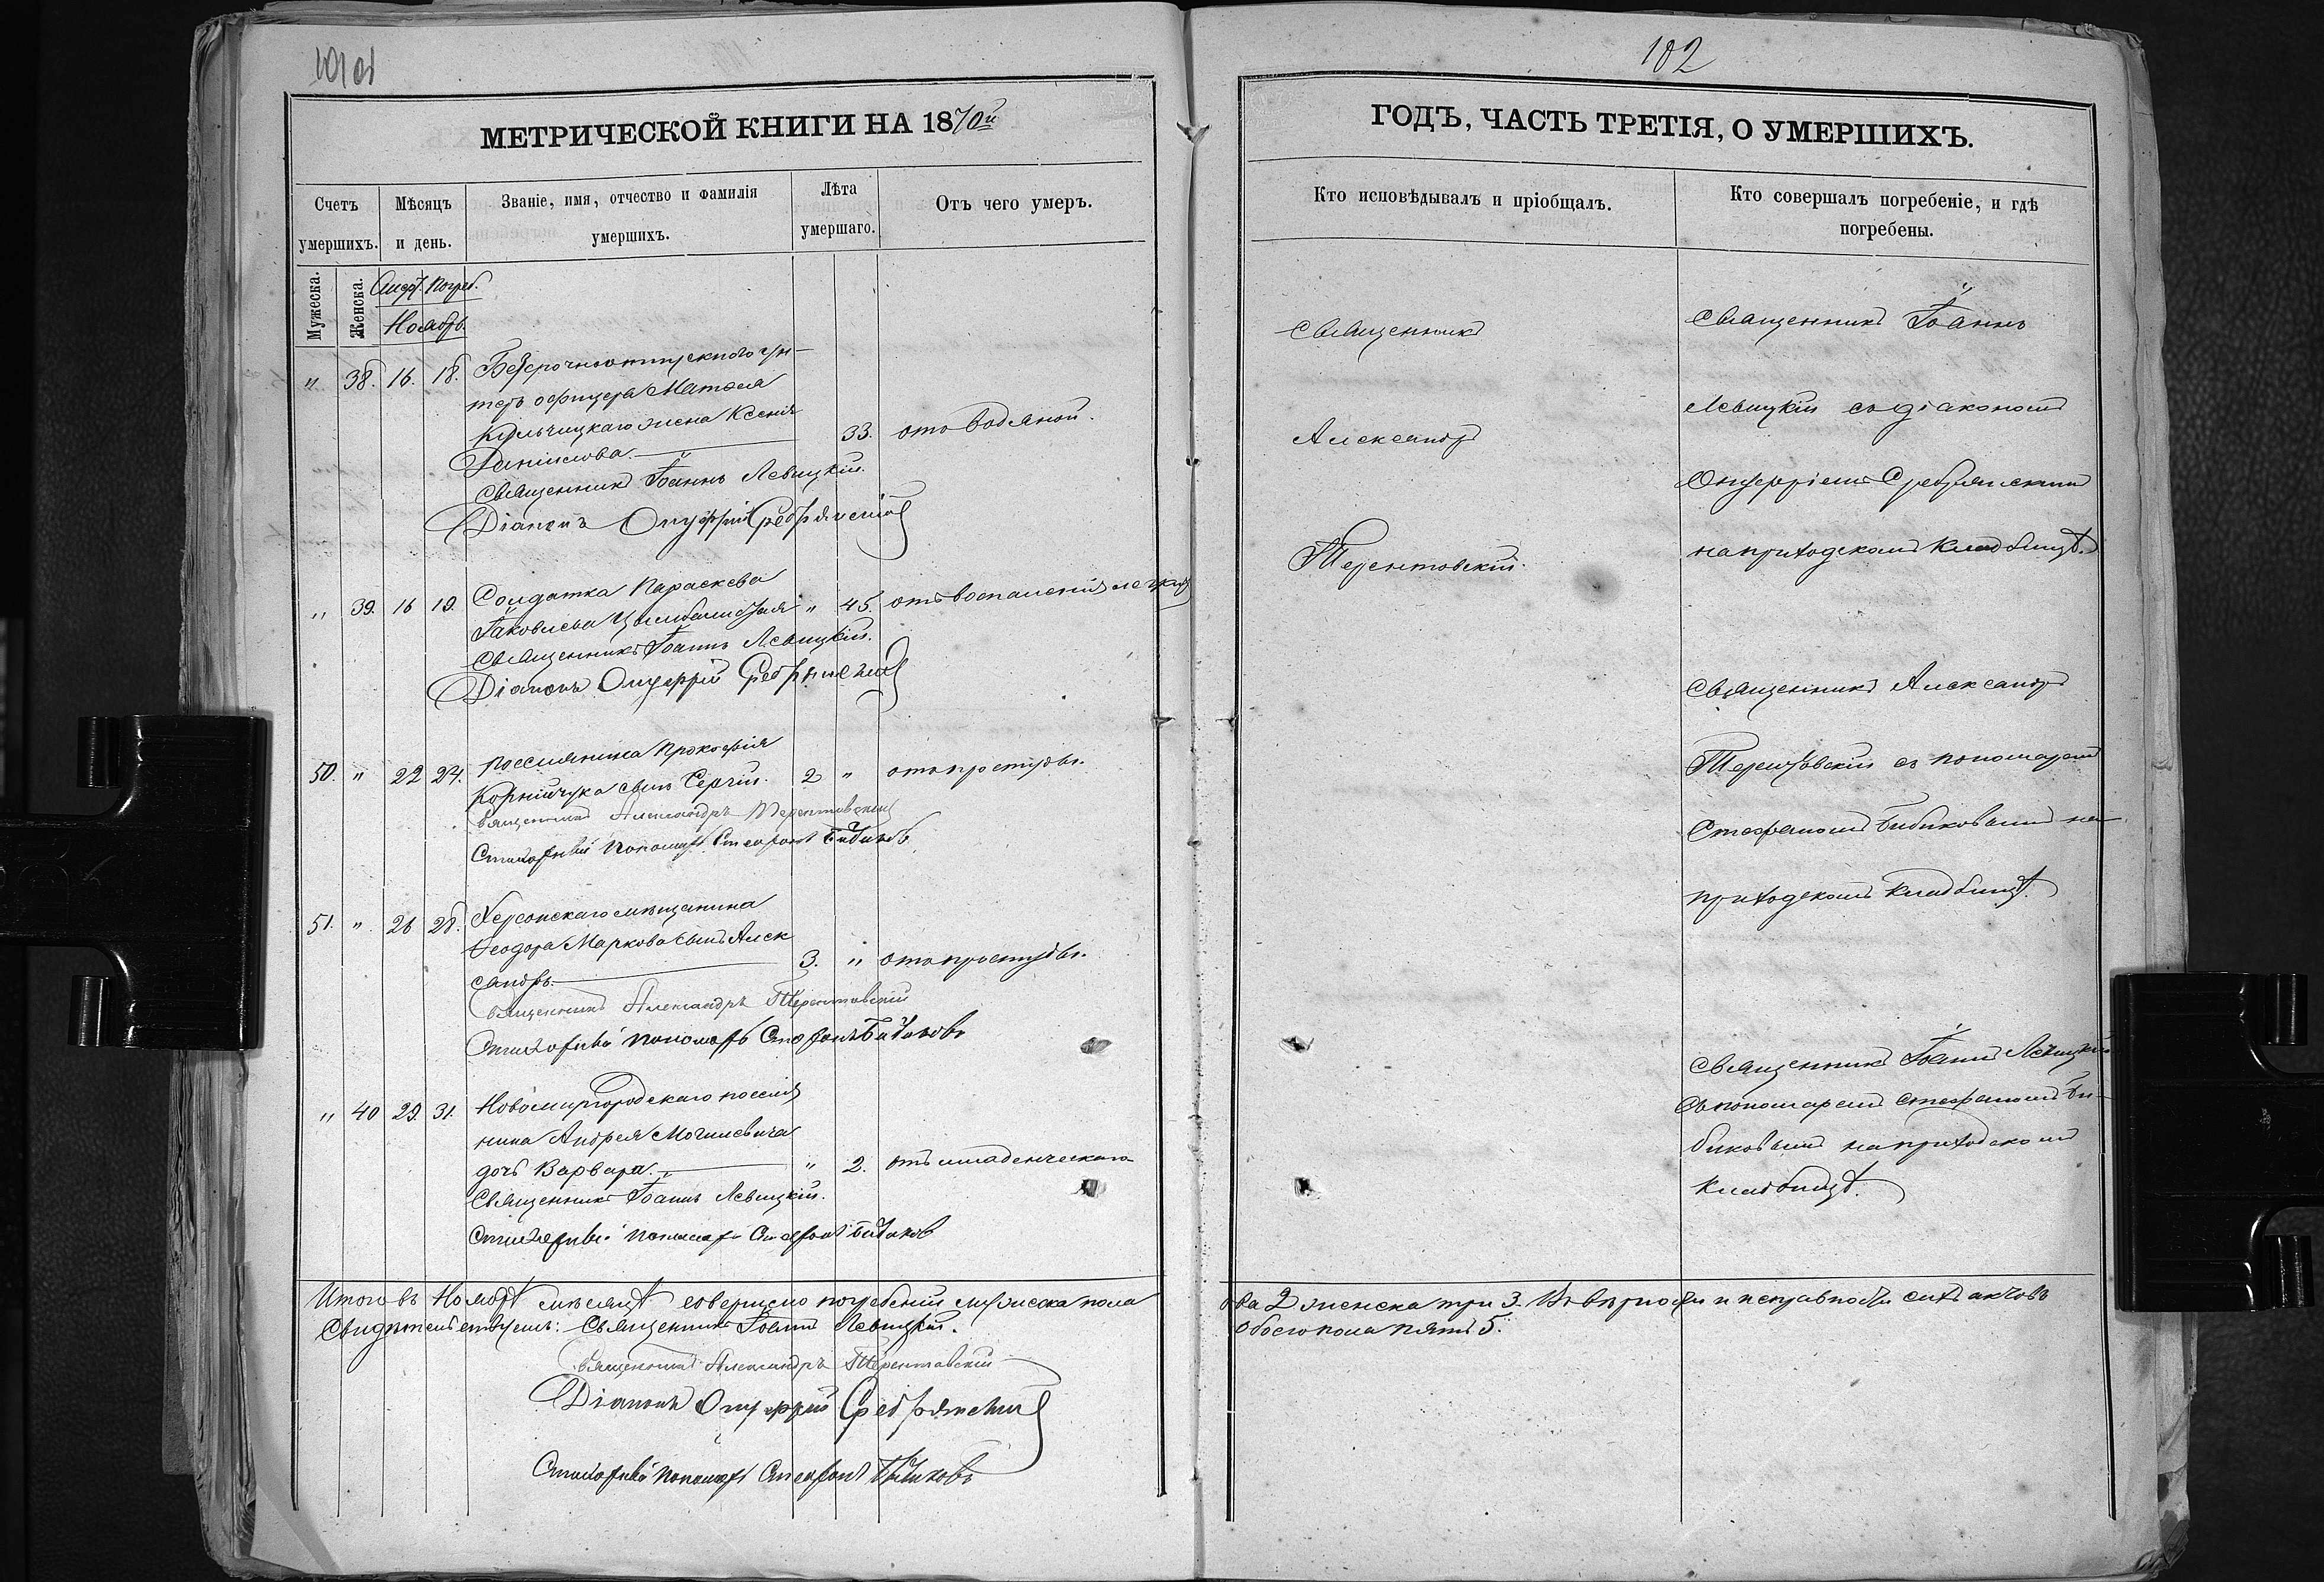 102
МЕТРИЧЕСКОЙ КНИГИ НА 1870й
ГОДЪ, ЧАСТЬ ТРЕТІЯ, О УМЕРШИХЪ.
Счетъ умершихъ.
Мѣсяцъ и день.
Званіе, имя, отчество и фамилія умершихъ.
Лѣта умершаго.
Отъ чего умеръ.
Кто исповѣдывалъ и пріобщалъ.
Кто совершалъ погребеніе, и гдѣ погребены.
Мужеска.
Женска.
Погреб.
Ноябрь.
" 38. 16. 18. Безсрочноотпускного ун-
теръ офицера Матѳея
Кульчицкаго жена Ксенія
Даниилова. 33. отъ водяной.
Священникъ Іоаннъ Левицкій.
Діаконъ Онуфрій Сребрянскій
" 39. 16 19. Солдатка Параскева
Іаковлева " 45. отъ воспаленія легких
Священникъ Іоаннъ Левицкій.
Діаконъ Онуфрій Сребрянскій
50. " 22 24. Поселянина Прокофія
Корнійчука сынъ Сергій. 2 " отъ простуды.
Священникъ Александръ Терентовскій
Стихарный пономарь Стефанъ Бибиковъ
51. " 26 28. Херсонскаго мѣщанина
Ѳеодора Маркова сынъ Алек
сандръ. 3. " отъ простуды.
Священникъ Александръ Терентовскій
Стихарный пономарь Стефанъ Бибиковъ
" 40 29. 31. Новомиргородскаго посели
нина Андрея Могилевича
дочь Варвара. " 2. отъ младенческаго
Священникъ Іоаннъ Левицкій.
Стихарный пономарь Стефанъ Бибиковъ
Священникъ
Александръ
Терентовскій.
Священникъ Іоаннъ
Левицкій съ діакономъ
Онуфріемъ Сребрянскимъ
на приходскомъ кладбищѣ.
Священникъ Александръ
Терентовскій съ пономаремъ
Стефаномъ Бибиковымъ на
приходскомъ кладбищѣ.
Священникъ Іоаннъ Левицкій
съ пономаремъ Стефаномъ Би-
биковымъ на приходскомъ
кладбищѣ.
Итого въ Ноябрѣ мѣсяцѣ совершено погребеній мужеска пола
два 2 женска три 3. Въ вѣрности и исправности сихъ актовъ
обоего пола пять 5.
Свидѣтельствуемъ: Священникъ Іоаннъ Левицкій.
Священникъ Александръ Терентовскій
Діаконъ Онуфрій Сребрянскій
Стихарный пономарь Стефанъ Бибиковъ